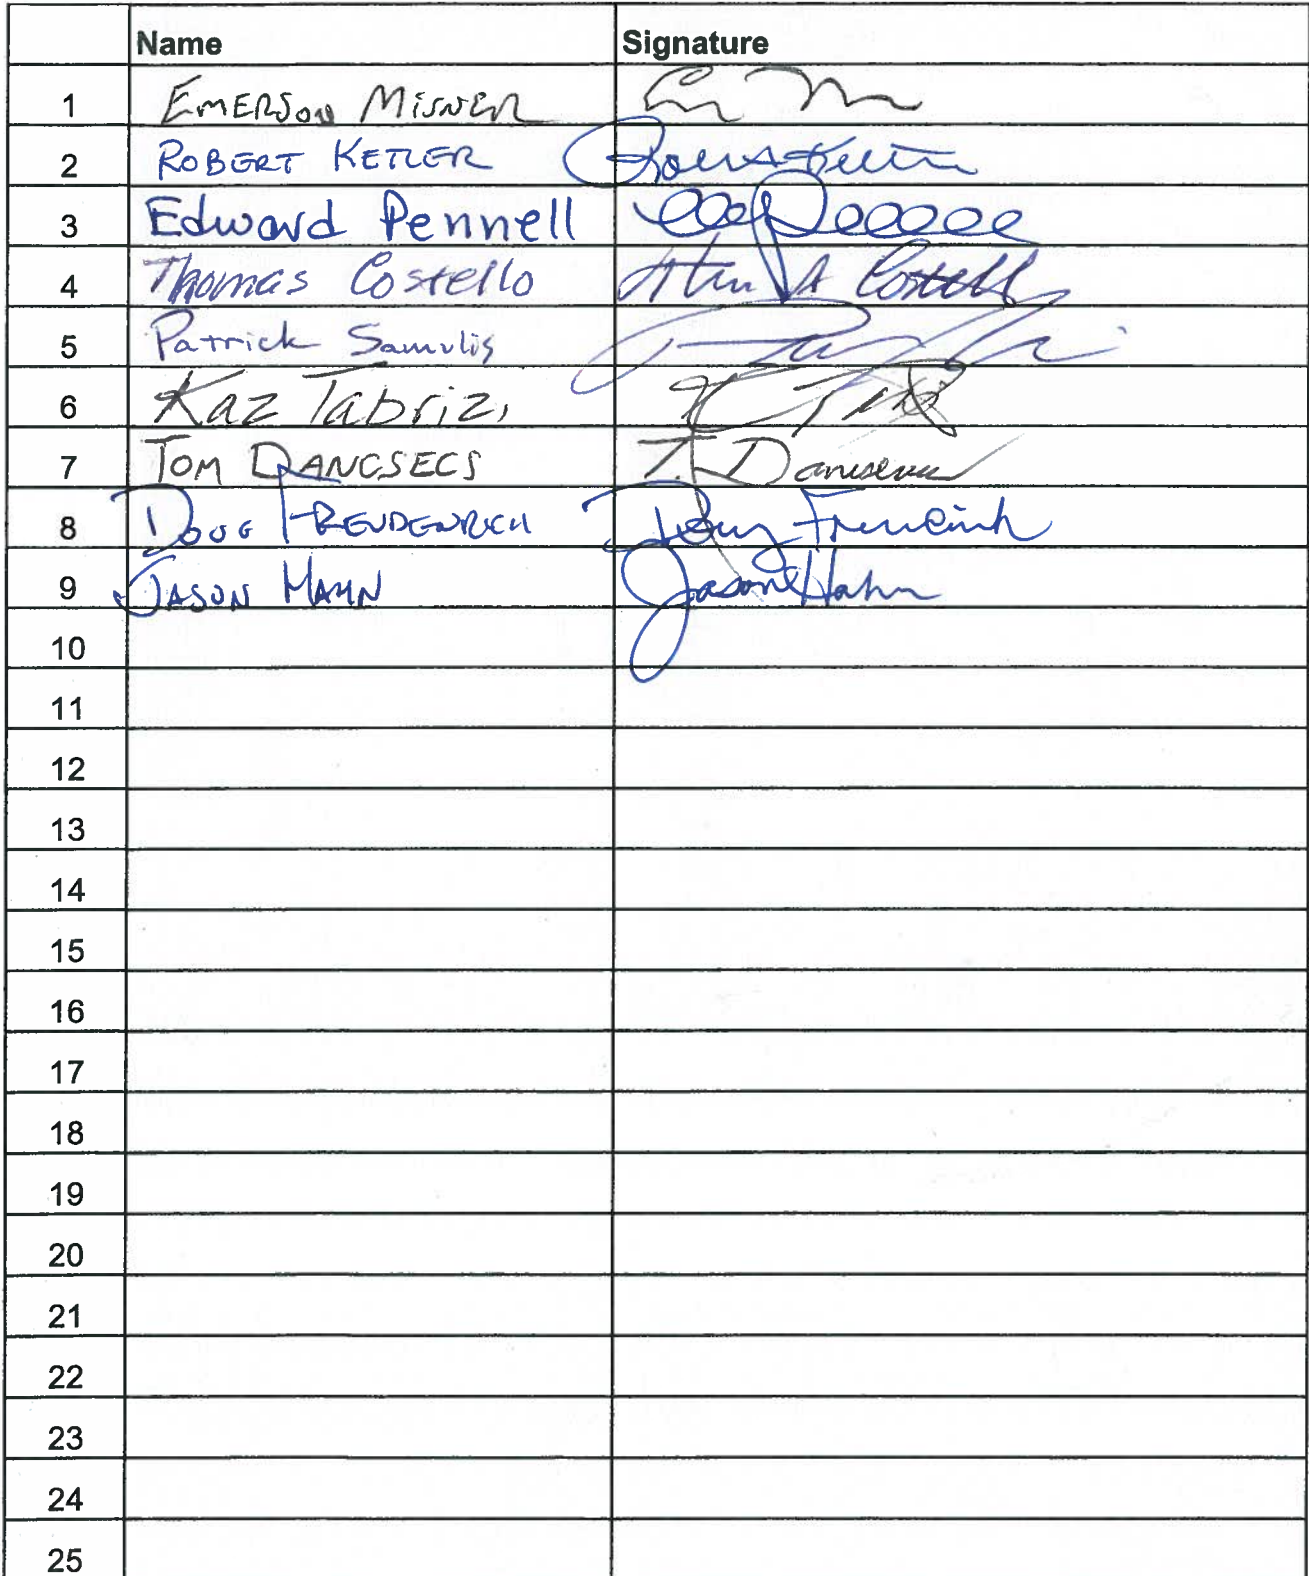 Name Signature
1 EMERSON MISNER
2 ROBERT KETLER
3 Edward Pennell
4 Thomas Costello Costello
5 Patrick Samulis
6 Kaz Tabrizi
7 TOM DANCSECS T. Dancsecs
8 DOUG FREUDENRICH Doug
9 JASON HAHN Jason Hahn
10
11
12
13
14
15
16
17
18
19
20
21
22
23
24
25